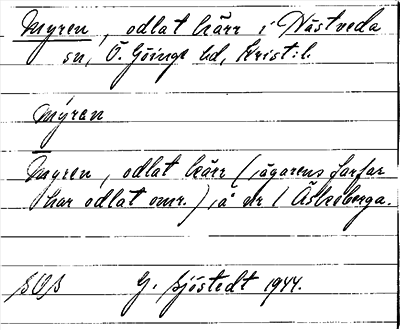 Myren, odlat kärr i Nästveda
sn, Ö. Göinge hd, Krist:l.
mýren
Myren, odlat kärr (ägarens farfar
har odlat omr.), å nr 1 Äskeberga.
SOS G. Sjöstedt 1944.